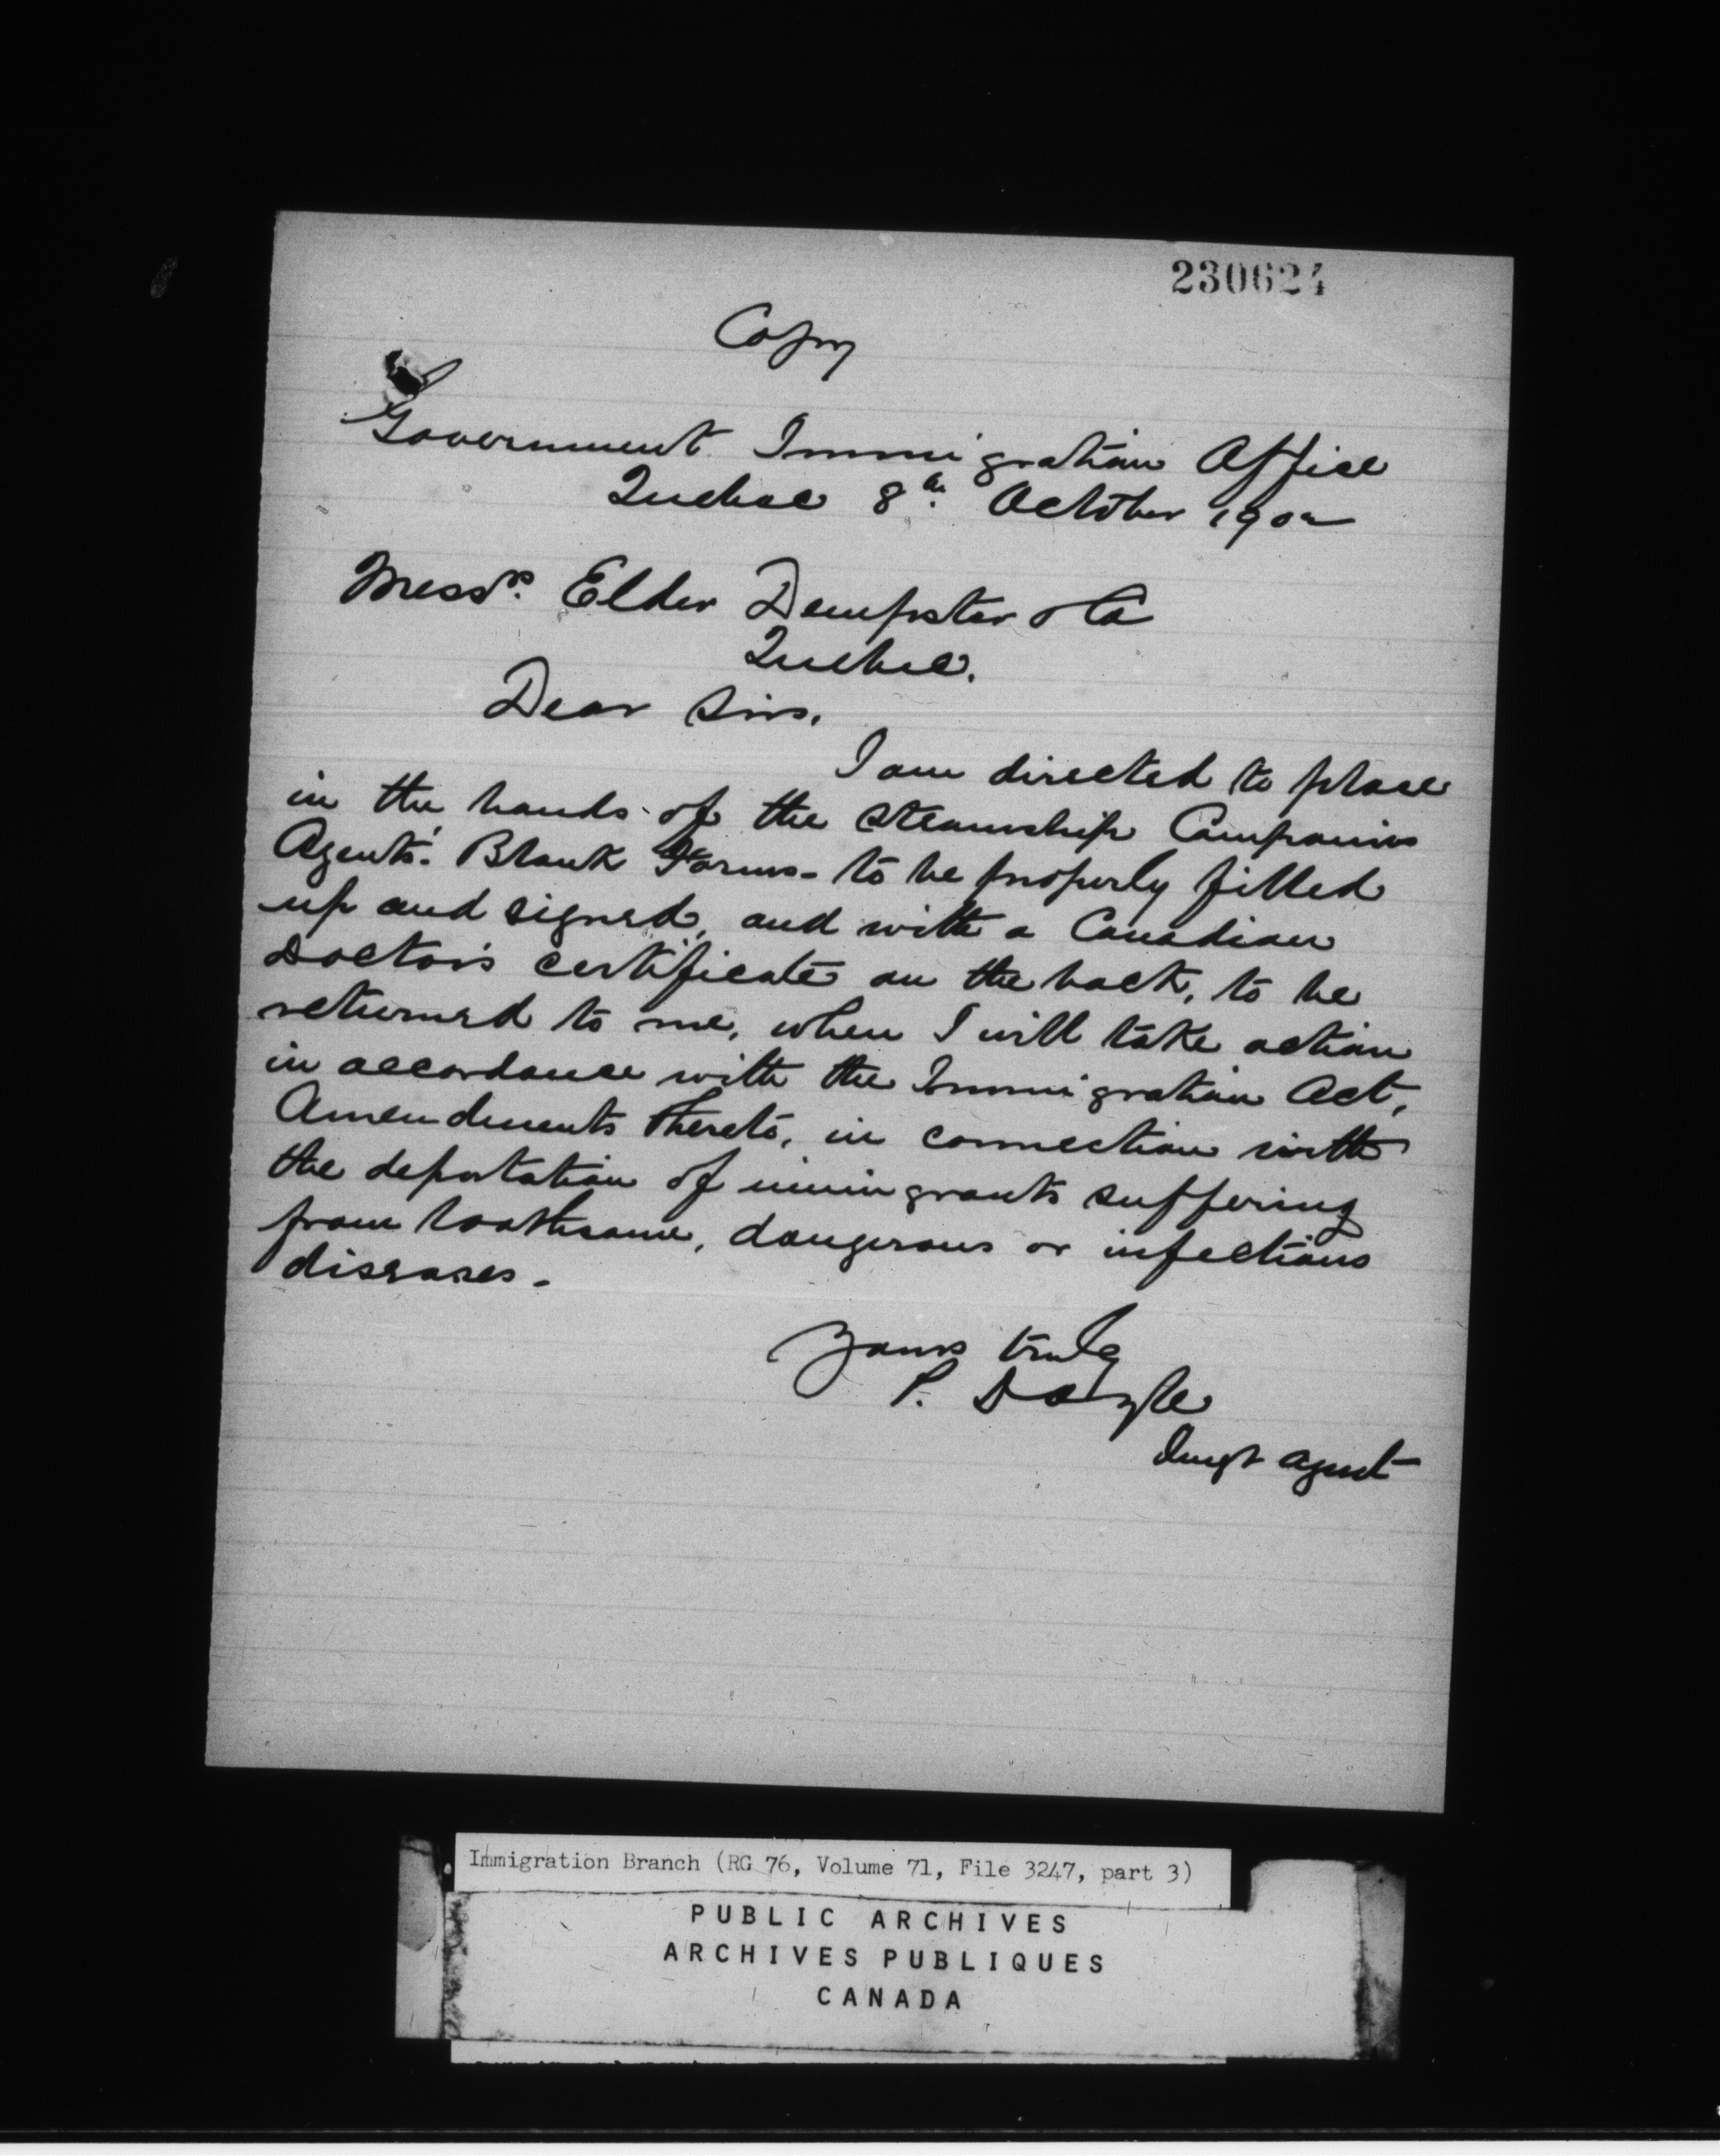 230624
Copy
Government Immigration Office
Quebec 8th October 1902
Messrs. Elder Dempster & Co
Quebec.
Dear Sirs,
I am directed to place
in the hands of the Steamship Companies
Agents'. Blank Forms - to be properly filled
up and signed, and with a Canadian
Doctor's certificate on the back, to be
returned to me, when I will take action
in accordance with the Immigration Act,
Amendments thereto, in connection with
the deportation of immigrants suffering
from loathsome, dangerous or infectious
diseases -
Yours truly
P. Doyle
Imgt Agent
Immigration Branch (RG 76, Volume 71, File 3247, part 3)
PUBLIC ARCHIVES
ARCHIVES PUBLIQUES
CANADA